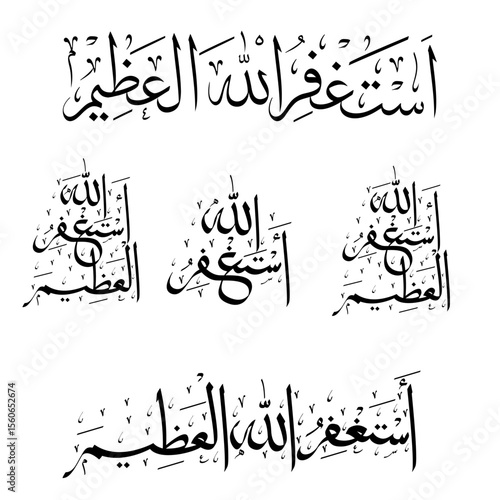 أستغفر الله العظيم
أستغفر الله العظيم
أستغفر الله
أستغفر الله العظيم
أستغفر الله العظيم
Adobe Stock | #1560652674